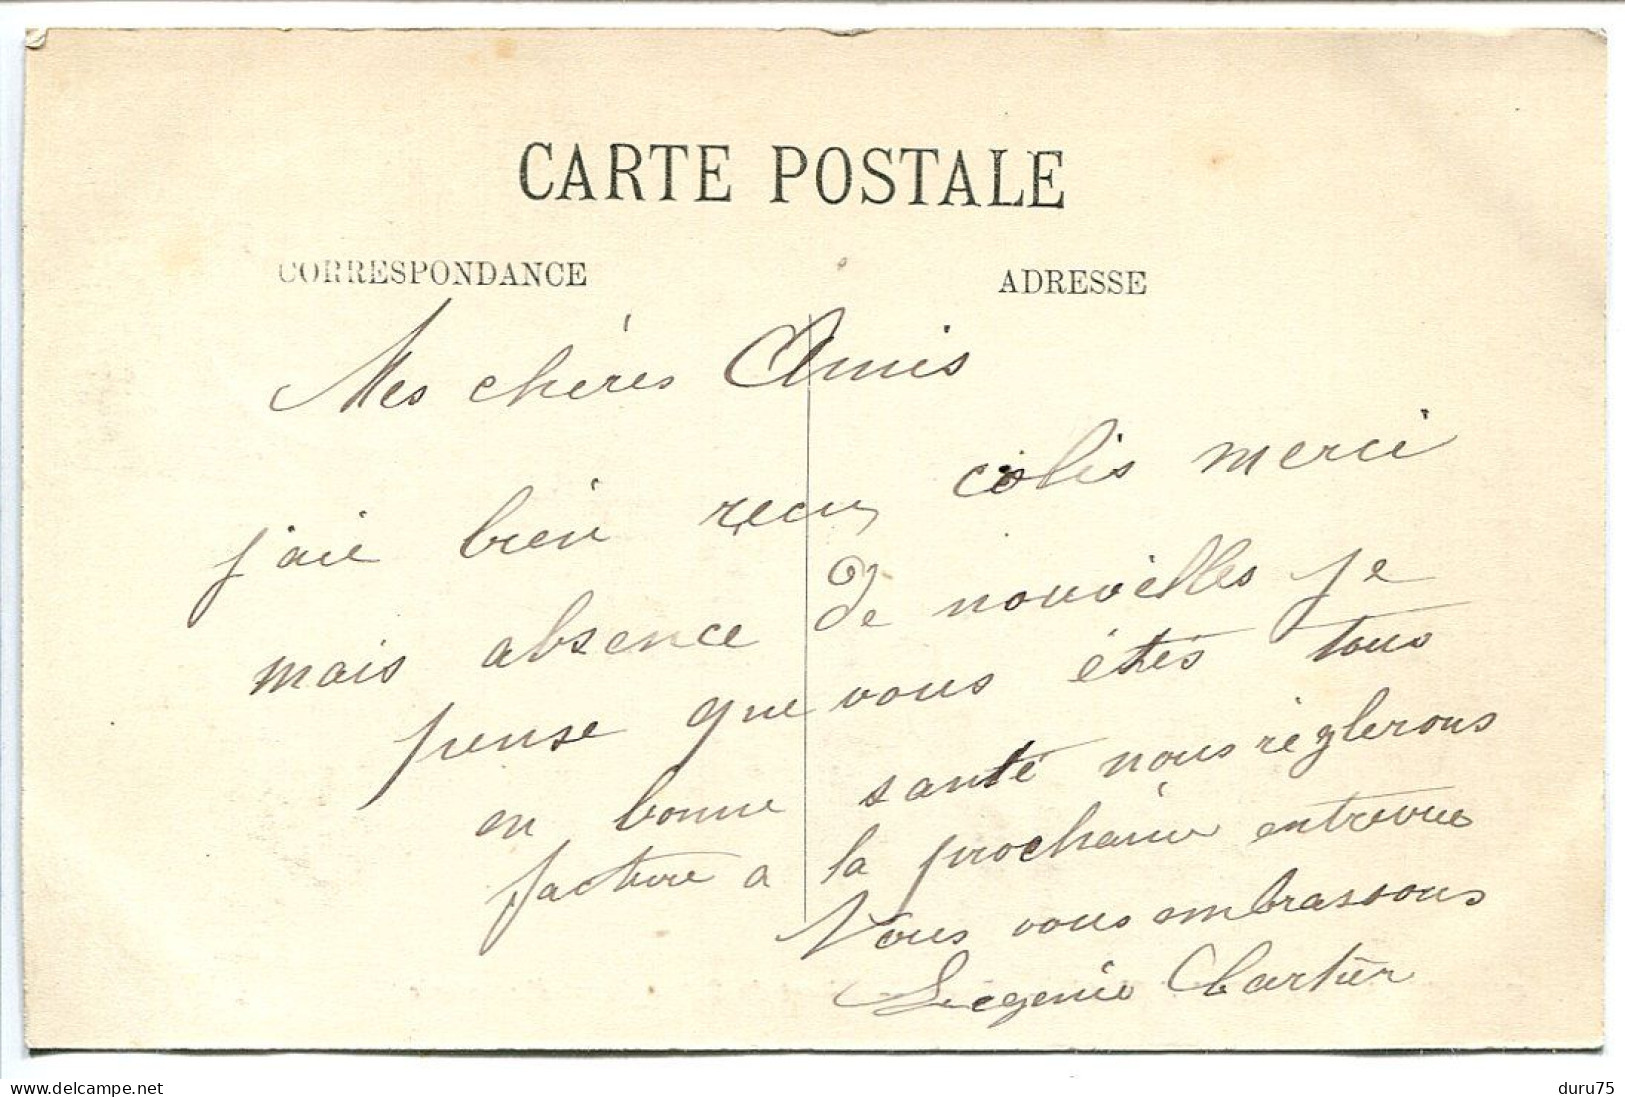 CARTE POSTALE
CORRESPONDANCE
ADRESSE
Mes chéres Amis
j'aie bien reçu colis merci
mais absence de nouvelles je
pense que vous étés tous
en bonne santé nous réglerons
facture a la prochaine entrevue
Nous vous embrassons
Eugenie Cartier
delcampe.net
duru75